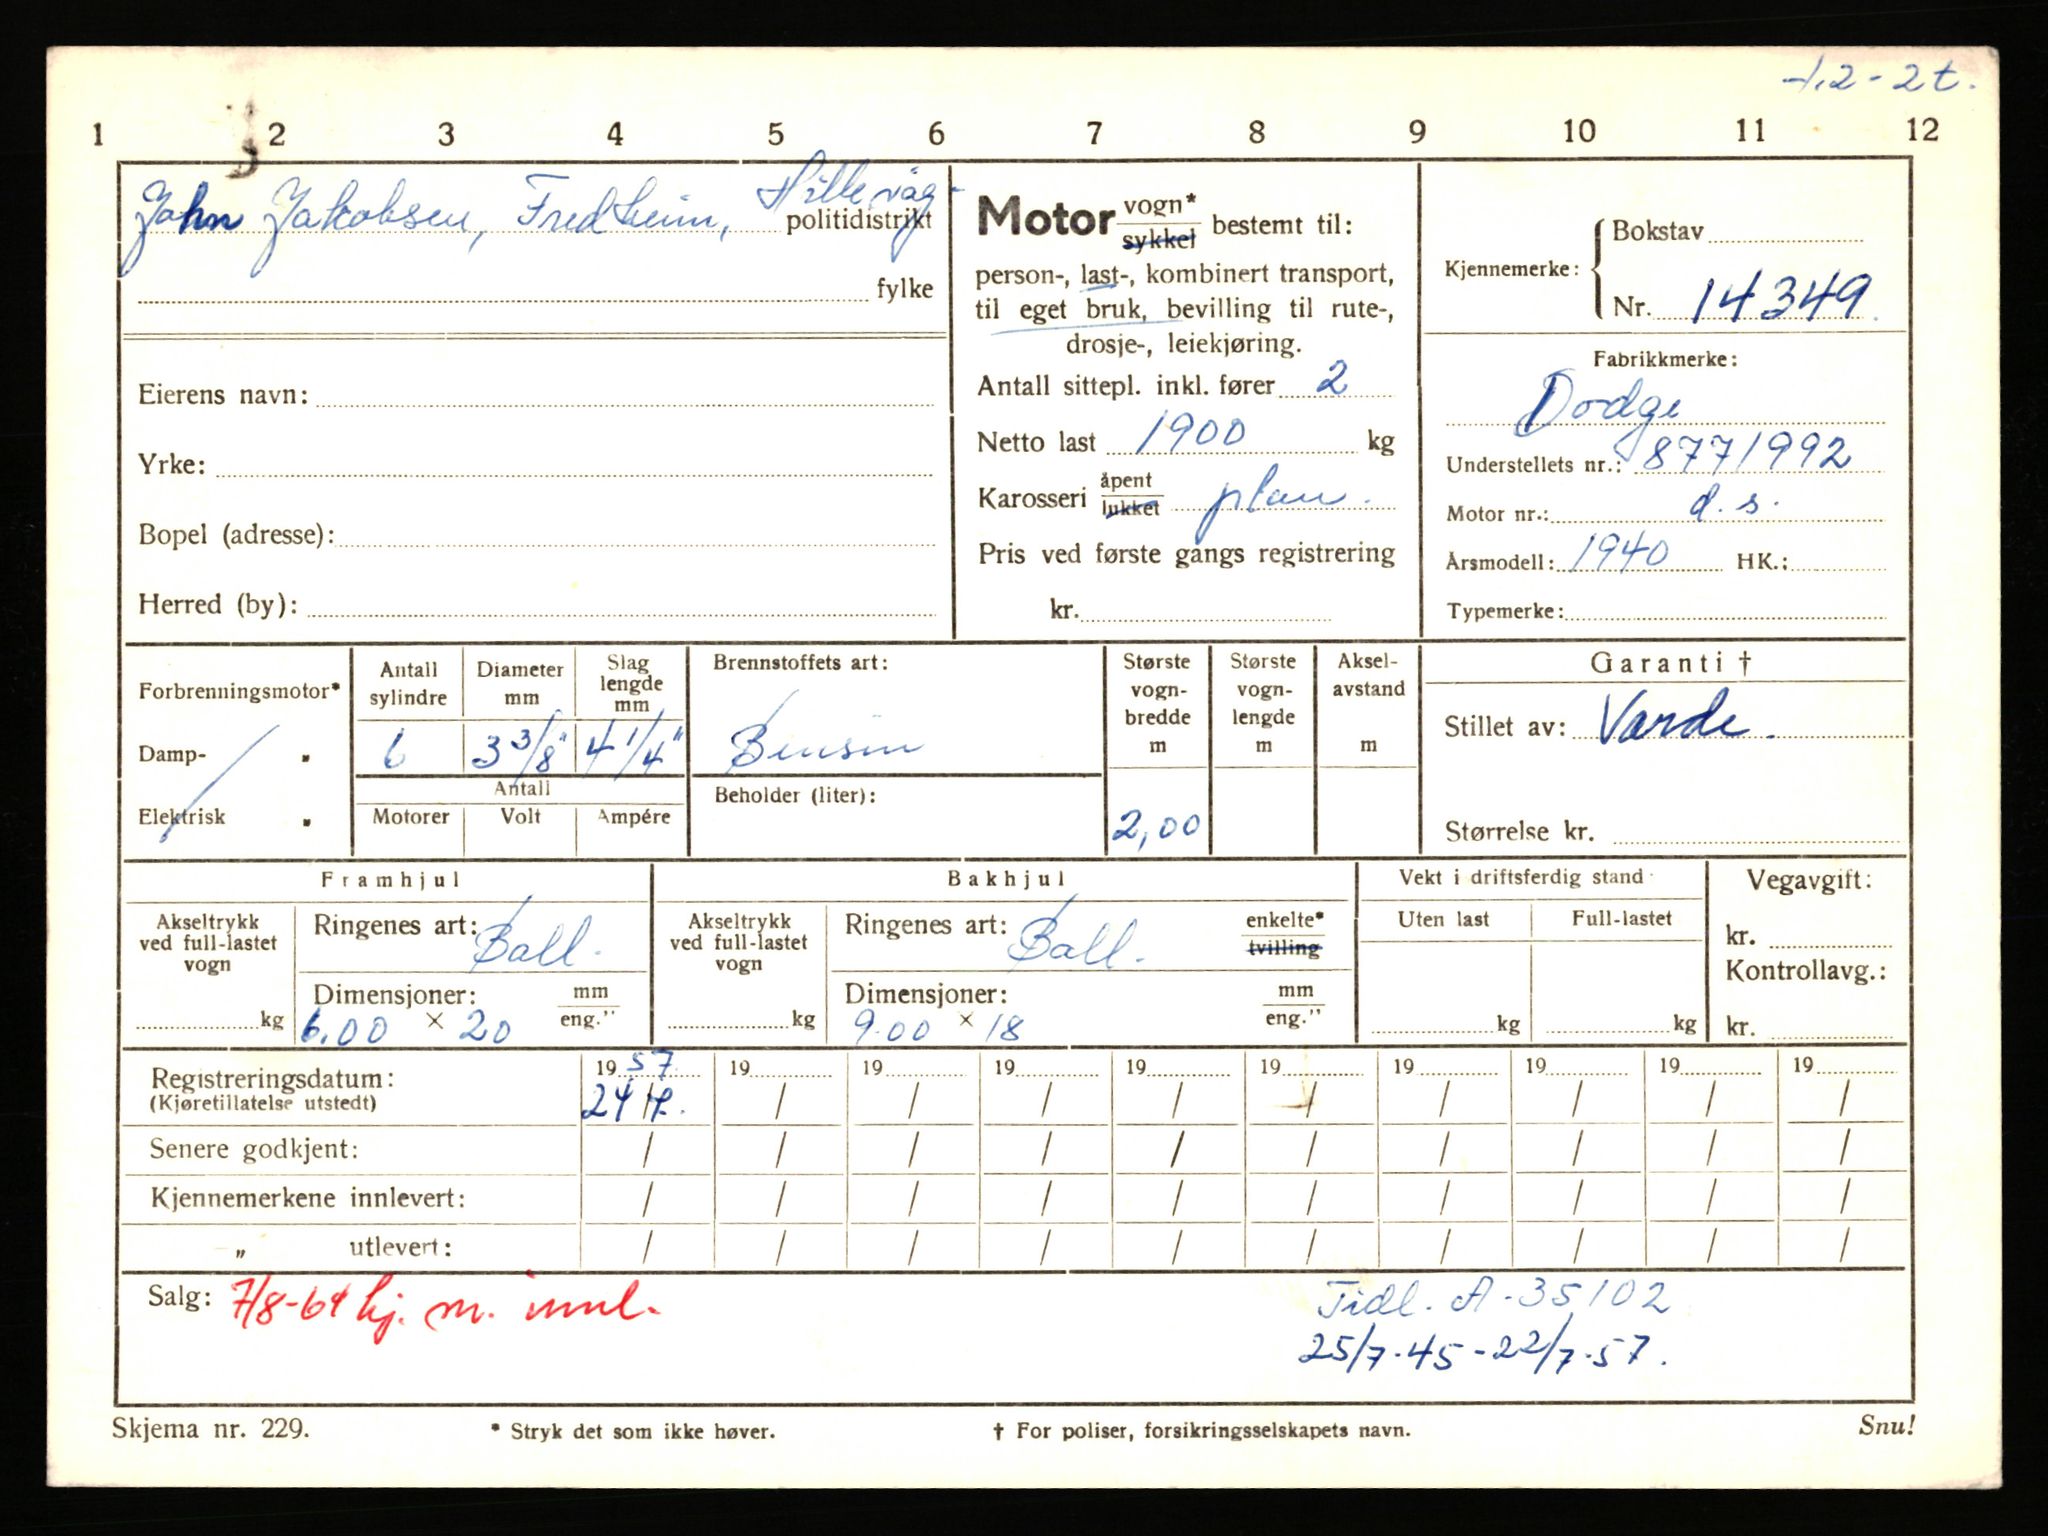 1.2 - 2 t.
1 2 3 4 5 6 7 8 9 10 11 12
John Jakobsen, Fredheim, Hillevåg politidistrikt
fylke
Eierens navn:
Yrke:
Bopel (adresse):
Herred (by):
Motor vogn* sykkel bestemt til:
person-, last-, kombinert transport,
til eget bruk, bevilling til rute-,
drosje-, leiekjøring.
Antall sittepl. inkl. fører 2
Netto last 1900 kg
Karosseri åpent lukket plan.
Pris ved første gangs registrering
kr.
Kjennemerke: Bokstav
Nr. 14349
Fabrikkmerke:
Dodge
Understellets nr.: 8771992
Motor nr.: d. s.
Årsmodell: 1940 HK.:
Typemerke:
Forbrenningsmotor*
Damp- "
Elektrisk "
Antall sylindre
6
Diameter mm
3 3/8"
Slag lengde mm
4 1/4"
Antall
Motorer Volt Ampére
Brennstoffets art:
Bensin
Beholder (liter):
Største vogn-bredde m
2,00
Største vogn-lengde m
Aksel-avstand m
Garanti †
Stillet av: Varde.
Størrelse kr.
Framhjul
Akseltrykk ved full-lastet vogn
kg
Ringenes art: Ball.
Dimensjoner: mm eng."
6.00 × 20
Bakhjul
Akseltrykk ved full-lastet vogn
kg
Ringenes art: Ball. enkelte* tvilling
Dimensjoner: mm eng."
9.00 × 18
Vekt i driftsferdig stand
Uten last Full-lastet
kg kg
Vegavgift:
kr.
Kontrollavg.:
kr.
Registreringsdatum: 1957 19 19 19 19 19 19 19 19 19
(Kjøretillatelse utstedt) 24/7. / / / / / / / / /
Senere godkjent: / / / / / / / / / /
Kjennemerkene innlevert: / / / / / / / / / /
„ utlevert: / / / / / / / / / /
Salg: 7/8-64 kj. m. innl.
Tidl. A-35102
25/7.45-22/7.57.
Skjema nr. 229. * Stryk det som ikke høver. † For poliser, forsikringsselskapets navn. Snu!